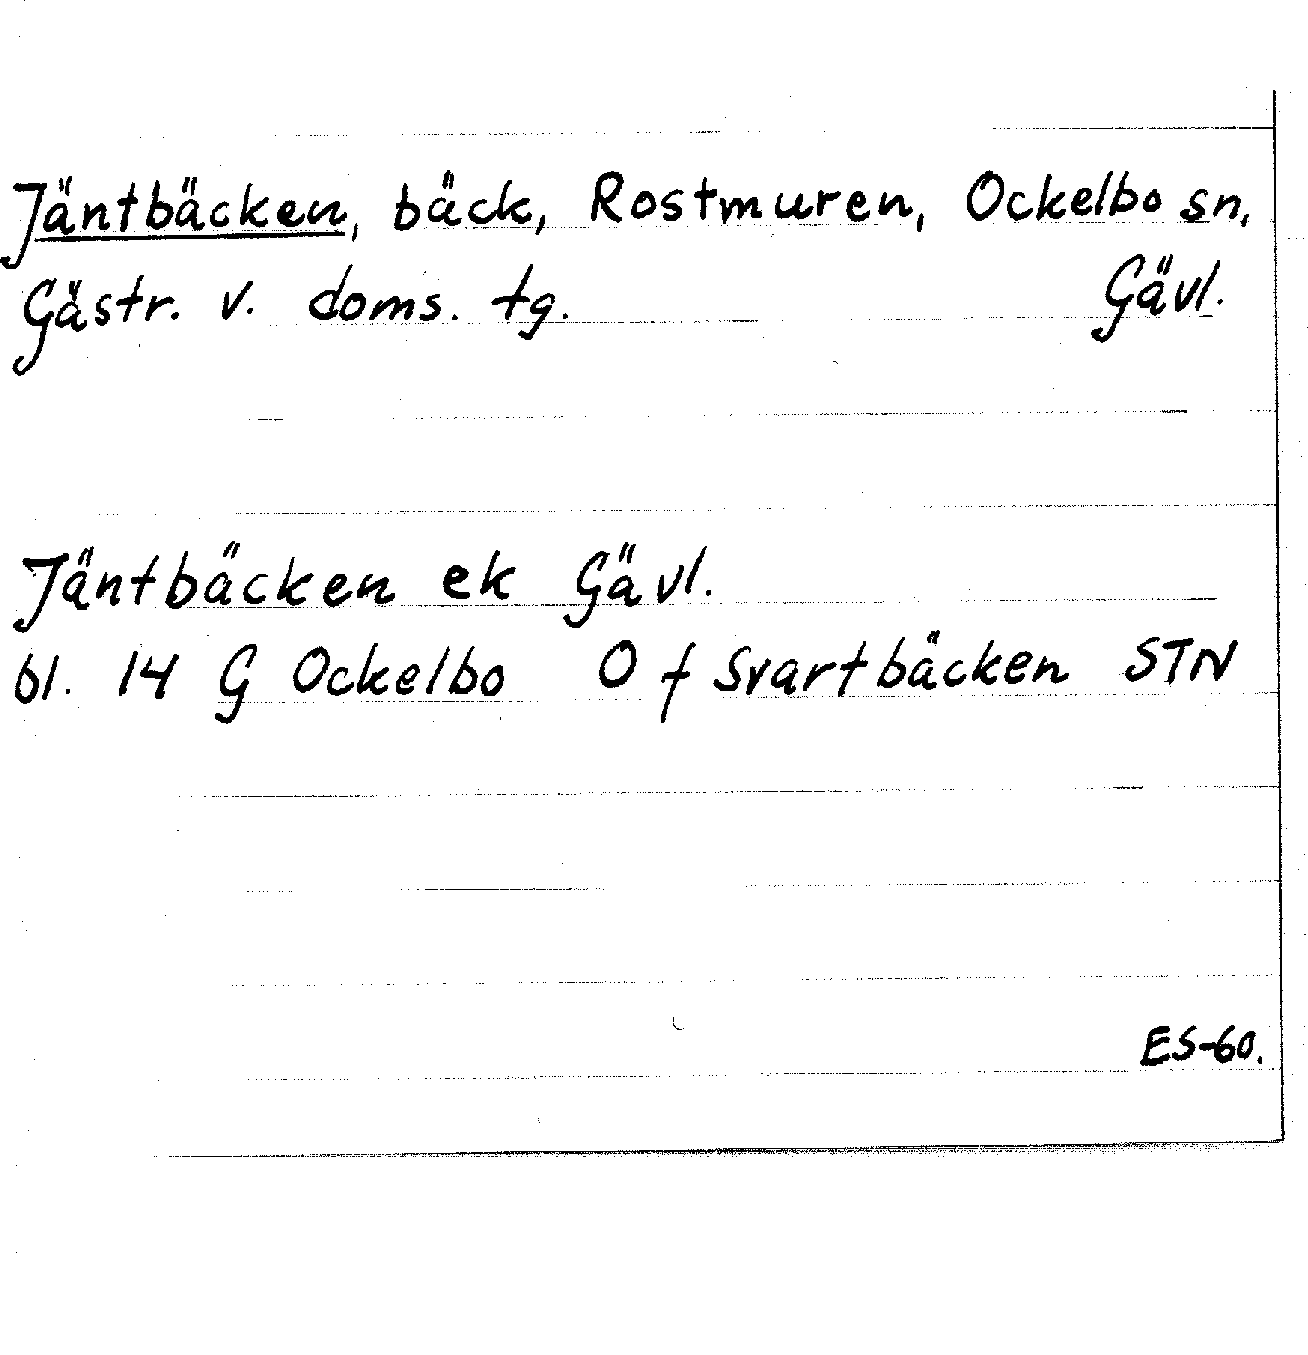 Jäntbäcken, bäck, Rostmuren, Ockelbo sn,
Gästr. v. doms. tg. Gävl.
Jäntbäcken ek Gävl.
bl. 14 G Ockelbo O f Svartbäcken STN
ES-60.